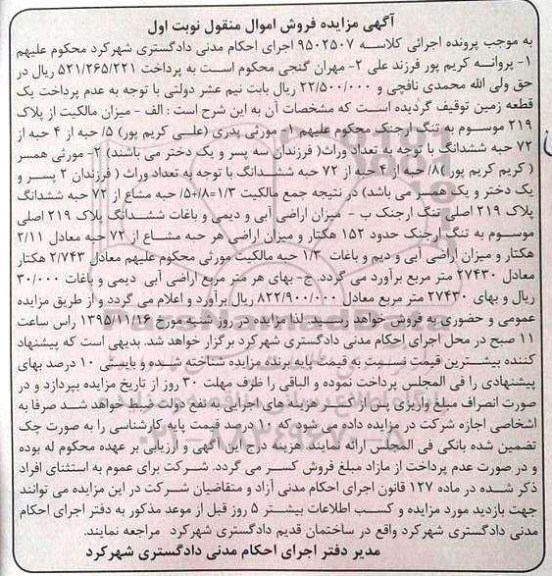 آگهی مزایده فروش اموال منقول نوبت اول
به موجب پرونده اجرائی کلاسه ۹۵۰۲۵۰۷ اجرای احکام مدنی دادگستری شهرکرد محکوم علیهم
۱- پروانه کریم پور فرزند علی ۲- مهران گنجی محکوم است به پرداخت ۵۲۱/۲۶۵/۲۲۱ ریال در
حق ولی الله محمدی نافچی و ۲۲/۵۰۰/۰۰۰ ریال بابت نیم عشر دولتی با توجه به عدم پرداخت یک
قطعه زمین توقیف گردیده است که مشخصات آن به این شرح است : الف - میزان مالکیت از پلاک
۲۱۹ موسوم به تنگ ارجنک محکوم علیهم ۱- مورثی پدری (علی کریم پور) ۵/. حبه از ۴ حبه از
۷۲ حبه ششدانگ با توجه به تعداد وراث( فرزندان سه پسر و یک دختر می باشند) ۲- مورثی همسر
( کریم کریم پور )۸/. حبه از ۴ حبه از ۷۲ حبه ششدانگ با توجه به تعداد وراث ( فرزندان ۲ پسر و
یک دختر و یک همسر می باشد) در نتیجه جمع مالکیت ۱/۳=۸/.+۵/. حبه مشاع از ۷۲ حبه ششدانگ
پلاک ۲۱۹ اصلی تنگ ارجنک ب - میزان اراضی آبی و دیمی و باغات ششدانگ پلاک ۲۱۹ اصلی
موسوم به تنگ ارجنک حدود ۱۵۲ هکتار و میزان اراضی هر حبه مشاع از ۷۲ حبه معادل ۲/۱۱
هکتار و میزان اراضی آبی و دیم و باغات ۱/۳ حبه مالکیت مورثی محکوم علیهم معادل ۲/۷۴۳ هکتار
معادل ۲۷۴۳۰ متر مربع برآورد می گردد. ج- بهای هر متر مربع اراضی آبی دیمی و باغات ۳۰/۰۰۰
ریال و بهای ۲۷۴۳۰ متر مربع معادل ۸۲۲/۹۰۰/۰۰۰ ریال برآورد و اعلام می گردد و از طریق مزایده
عمومی و حضوری به فروش خواهد رسید. لذا مزایده در روز شنبه مورخ ۱۳۹۵/۱۱/۱۶ راس ساعت
۱۱ صبح در محل اجرای احکام مدنی دادگستری شهرکرد برگزار خواهد شد. بدیهی است که پیشنهاد
کننده بیشترین قیمت نسبت به قیمت پایه برنده مزایده شناخته شده و بایستی ۱۰ درصد بهای
پیشنهادی را فی المجلس پرداخت نموده و الباقی را ظرف مهلت ۳۰ روز از تاریخ مزایده بپردازد و در
صورت انصراف مبلغ واریزی پس از کسر هزینه های اجرایی به نفع دولت ضبط خواهد شد صرفا به
اشخاصی اجازه شرکت در مزایده داده می شود که ۱۰ درصد قیمت پایه کارشناسی را به صورت چک
تضمین شده بانکی فی المجلس ارائه نمایند. هزینه درج این آگهی و ارزیابی بر عهده محکوم له بوده
و در صورت عدم پرداخت از مازاد مبلغ فروش کسر می گردد. شرکت برای عموم به استثنای افراد
ذکر شده در ماده ۱۲۷ قانون اجرای احکام مدنی آزاد و متقاضیان شرکت در این مزایده می توانند
جهت بازدید مورد مزایده و کسب اطلاعات بیشتر ۵ روز قبل از موعد مذکور به دفتر اجرای احکام
مدنی دادگستری شهرکرد واقع در ساختمان قدیم دادگستری شهرکرد مراجعه نمایند.
مدیر دفتر اجرای احکام مدنی دادگستری شهرکرد